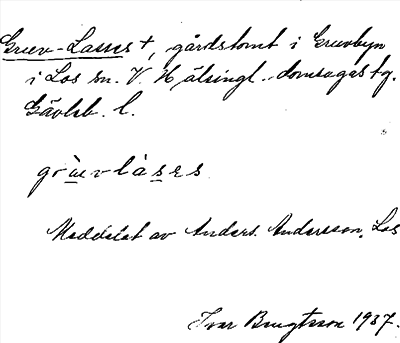 Gruv-Lasses +, gårdstomt i Gruvbyn
i Los sn. V. Hälsingl. domsagas tg.
Gävleb. l.
grùvlàsɛs
Meddelat av Anders Andersson, Los
Ivar Bengtsson 1937.